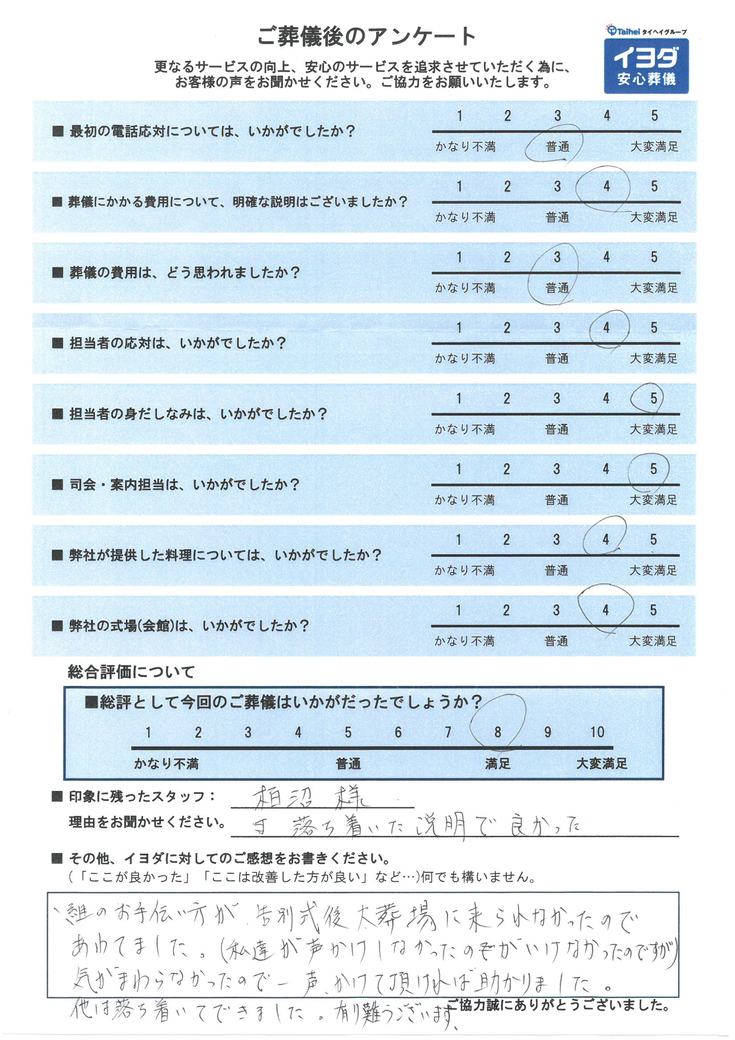 ご葬儀後のアンケート
Taihei タイヘイグループ
イヨダ
安心葬儀
更なるサービスの向上、安心のサービスを追求させていただく為に、
お客様の声をお聞かせください。ご協力をお願いいたします。
■ 最初の電話応対については、いかがでしたか？
1 2 3 4 5
かなり不満 普通 大変満足
■ 葬儀にかかる費用について、明確な説明はございましたか？
1 2 3 4 5
かなり不満 普通 大変満足
■ 葬儀の費用は、どう思われましたか？
1 2 3 4 5
かなり不満 普通 大変満足
■ 担当者の応対は、いかがでしたか？
1 2 3 4 5
かなり不満 普通 大変満足
■ 担当者の身だしなみは、いかがでしたか？
1 2 3 4 5
かなり不満 普通 大変満足
■ 司会・案内担当は、いかがでしたか？
1 2 3 4 5
かなり不満 普通 大変満足
■ 弊社が提供した料理については、いかがでしたか？
1 2 3 4 5
かなり不満 普通 大変満足
■ 弊社の式場(会館)は、いかがでしたか？
1 2 3 4 5
かなり不満 普通 大変満足
総合評価について
■総評として今回のご葬儀はいかがだったでしょうか？
1 2 3 4 5 6 7 8 9 10
かなり不満 普通 満足 大変満足
■ 印象に残ったスタッフ： 柏沼 様
理由をお聞かせください。 落ち着いた説明で良かった
■ その他、イヨダに対してのご感想をお書きください。
（「ここが良かった」「ここは改善した方が良い」など…)何でも構いません。
のお手伝い方が、告別式後火葬場に来られなかったので
あわてました。(私達が声かけしなかったのがいけなかったのですが)
気がまわらなかったので一声、かけて頂ければ助かりました。
他は落ち着いてできました。有り難うございます。
ご協力誠にありがとうございました。